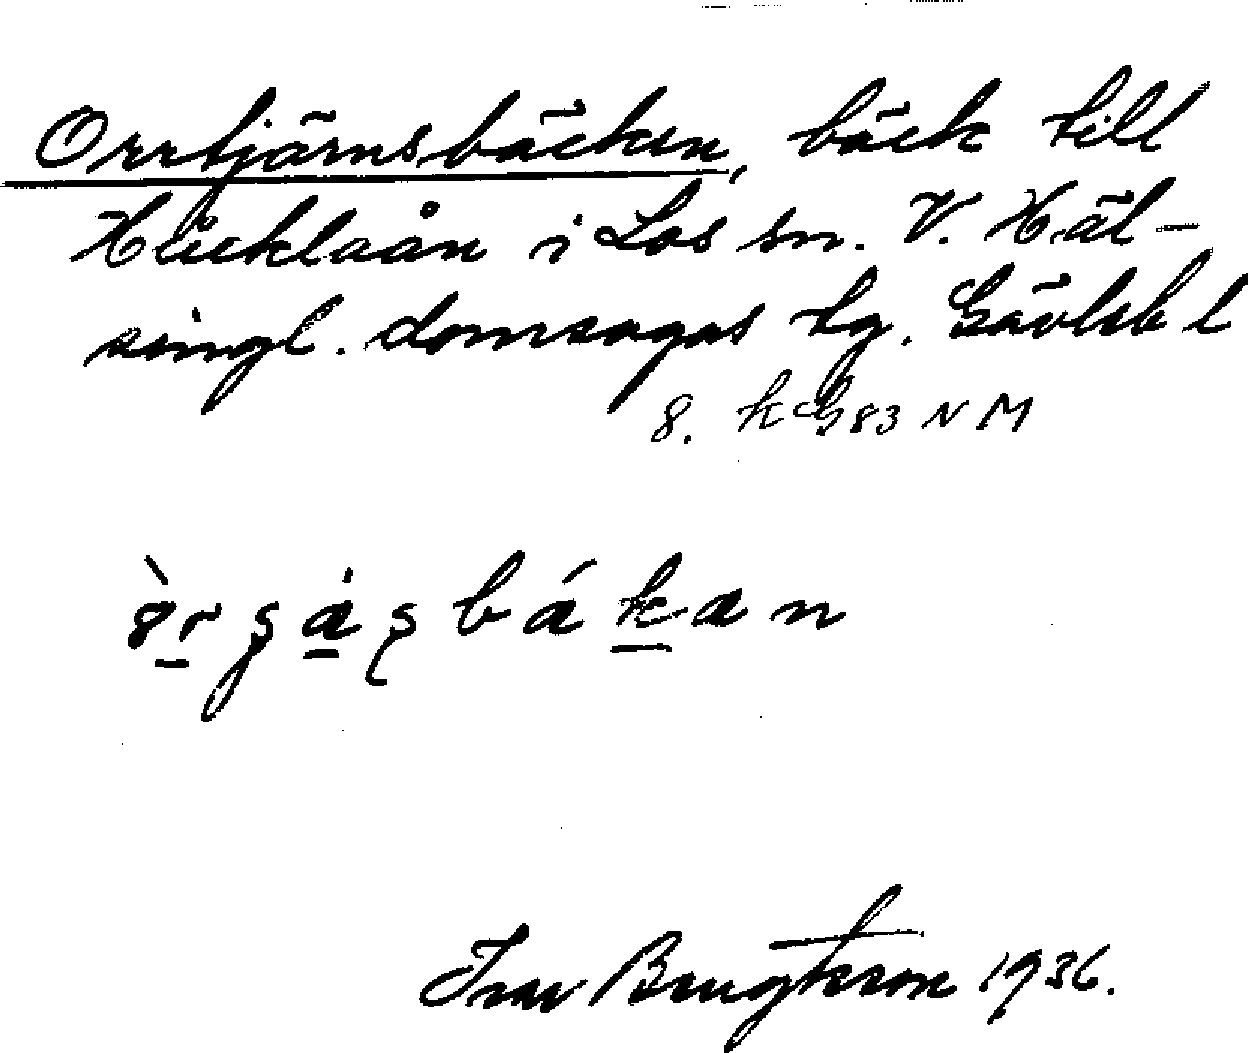 Orrtjärnsbäcken, bäck till
Häcklaån i Los sn. V. Häl-
singl. domsagas tg. Gävleb l
8. k G83 NM
bákan
Ivar Bengtsson 1936.